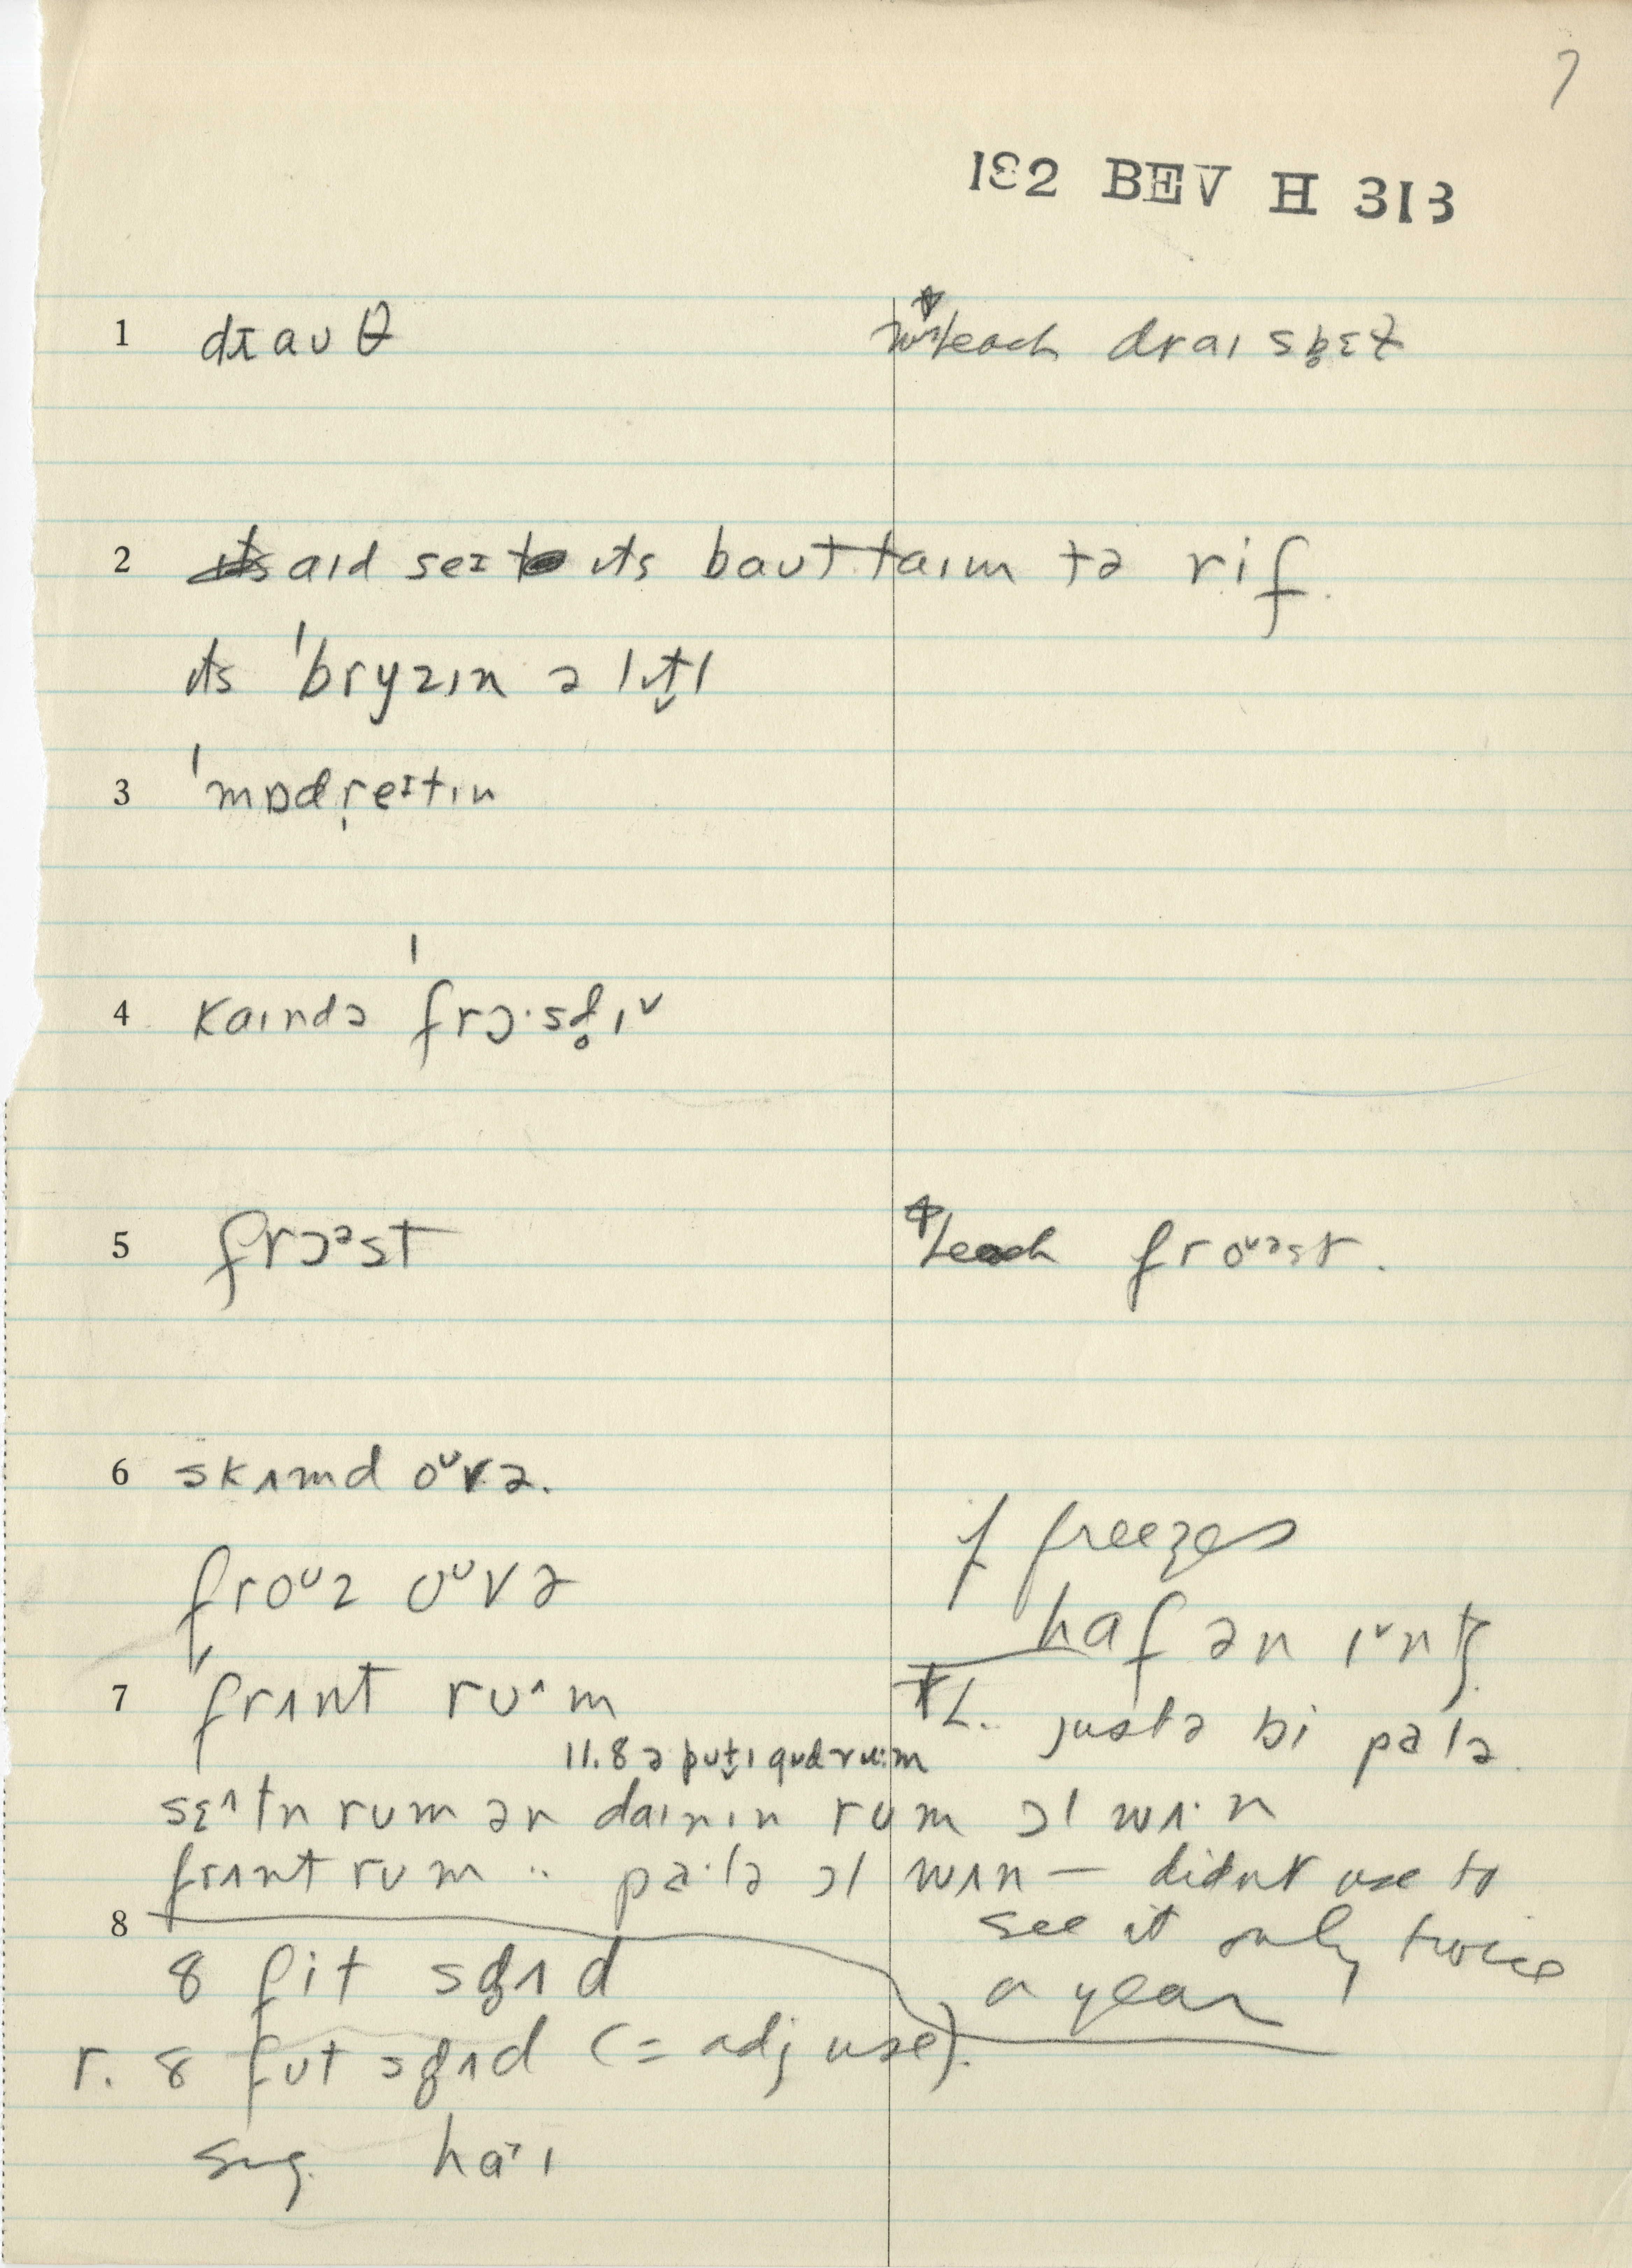 7
132 BEV H 313
1 drauθ
teach draɪ spɛt
2 aɪd seɪ ɪts baut taɪm tə rif.
ɪts ˈbryzɪn ə lɪt̬l
3 ˈmɒdreɪtɪn
4 kaɪndə ˈfrɔ·sd̥ɪ˅
5 frɔᵊst
teach froᵘəst.
6 skɪmd oᵘvə.
froᵘz oᵘvə
if freezes
haf ən ɪ˅ntʃ
7 ˈfrʌnt ruˆm
L. justə bi palə.
11.8 ə put̬ɪ gud ru:m
sɛˆtn rum ər daɪnɪn rum ɔl wʌ·n
frʌnt rum .. pa·lə ɔl wʌn — didnt use to
see it only twice
a year
8
8 fit sg̥ʌd
r. 8 fut sg̥ʌd (= adj use).
sug. haˑɪ